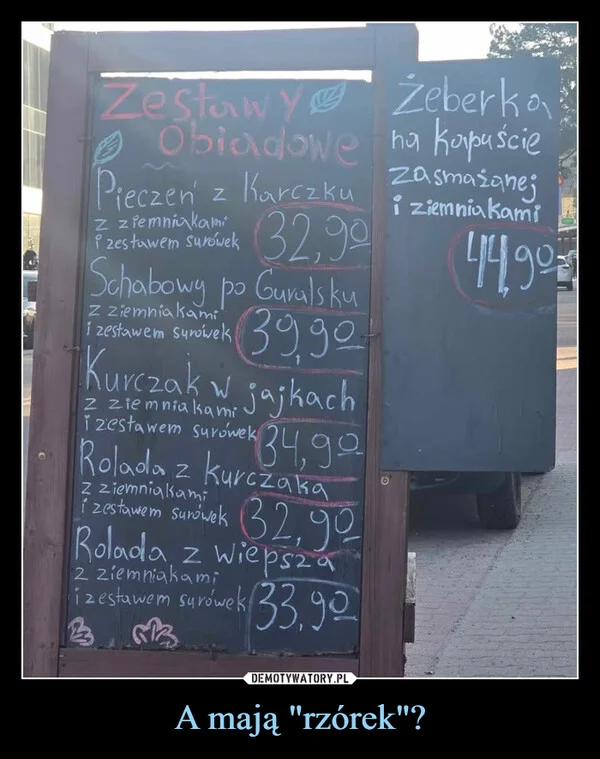 Zestawy
Obiadowe
Pieczeń z Karczku
z ziemniakami
i zestawem surówek
32,90
Schabowy po Guralsku
z ziemniakami
i zestawem surówek
39,90
Kurczak w jajkach
z ziemniakami
i zestawem surówek
34,90
Rolada z kurczaka
z ziemniakami
i zestawem surówek
32,90
Rolada z wiepsza
z ziemniakami
i zestawem surówek
33,90
Żeberka
na kapuście
zasmażanej
i ziemniakami
44,90
DEMOTYWATORY.PL
A mają "rzórek"?